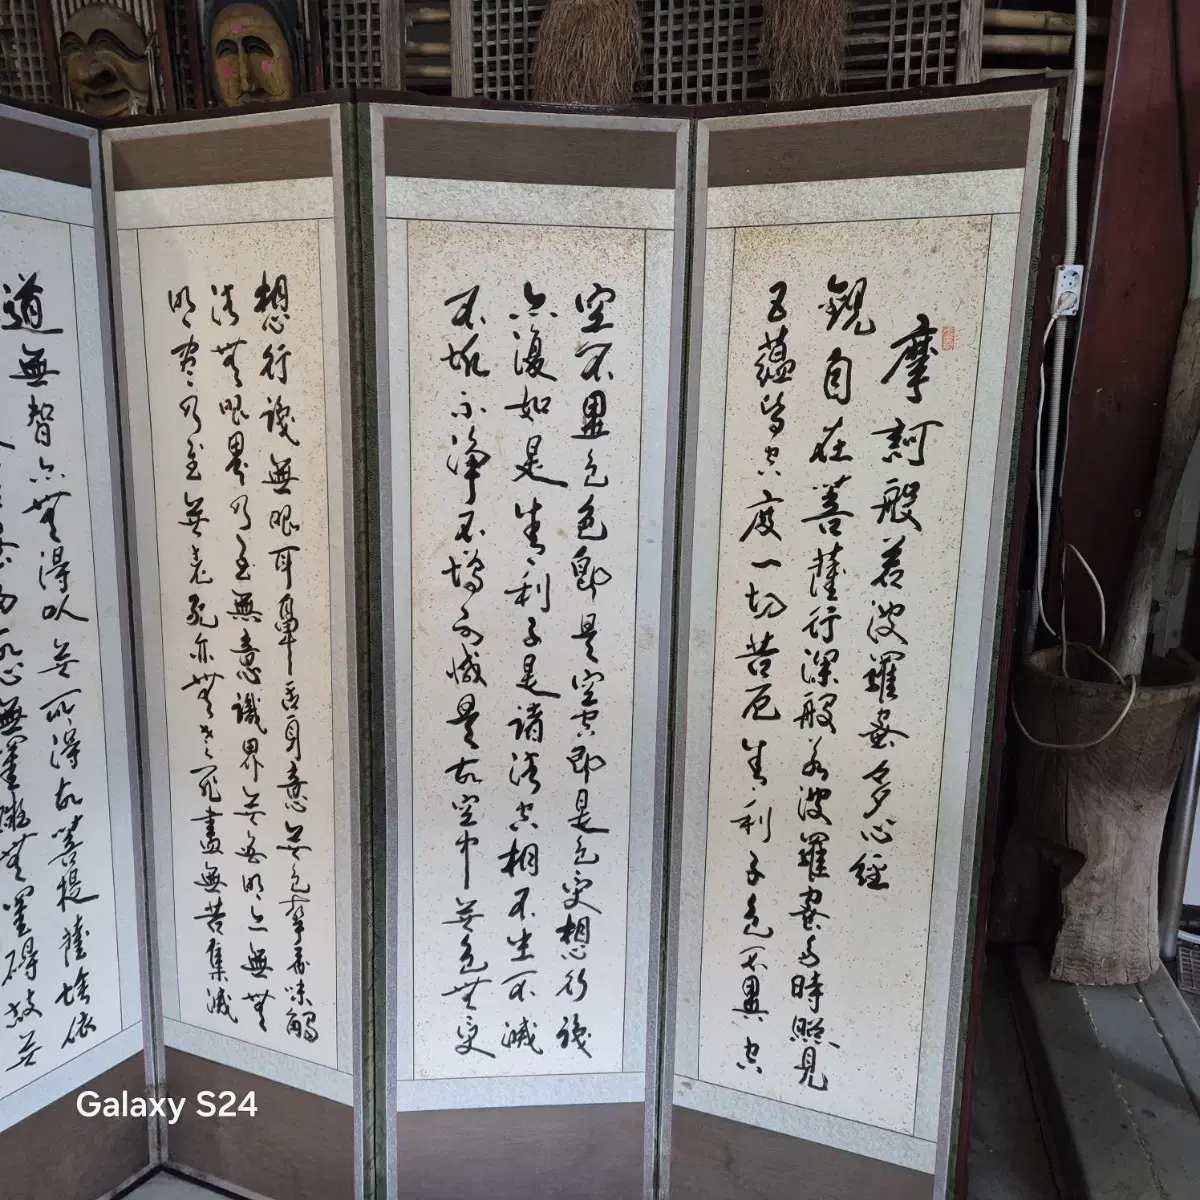 摩訶般若波羅蜜多心經
觀自在菩薩行深般若波羅蜜多時照見
五蘊皆空度一切苦厄舍利子色不異空
空不異色色卽是空空卽是色受想行識
亦復如是舍利子是諸法空相不生不滅
不垢不淨不增不減是故空中無色無受
想行識無眼耳鼻舌身意無色聲香味觸
法無眼界乃至無意識界無無明亦無無
明盡乃至無老死亦無老死盡無苦集滅
道無智亦無得以無所得故菩提薩埵依
故心無罣礙無罣礙故無
Galaxy S24